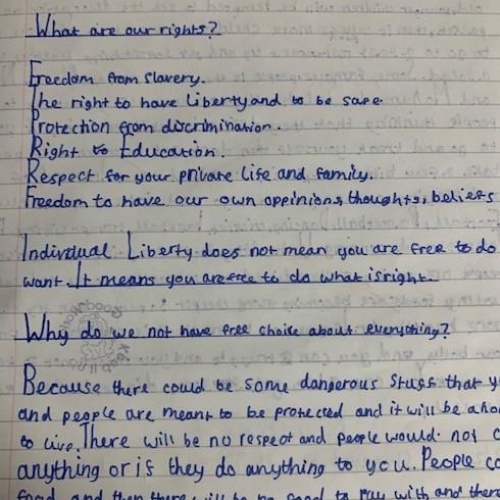 What are our rights?
Freedom from slavery.
The right to have liberty and to be safe.
Protection from discrimination.
Right to Education.
Respect for your private life and family.
Freedom to have our own oppinions, thoughts, beliefs
Individual Liberty does not mean you are free to do
want. It means you are free to do what is right.
Why do we not have free choice about everything?
Because there could be some dangerous stuff that y
and people are meant to be protected and it will be a hor
to live. There will be no respect and people would not c
anything or is they do anything to you. People co
food and then there will be no food to pay with and there